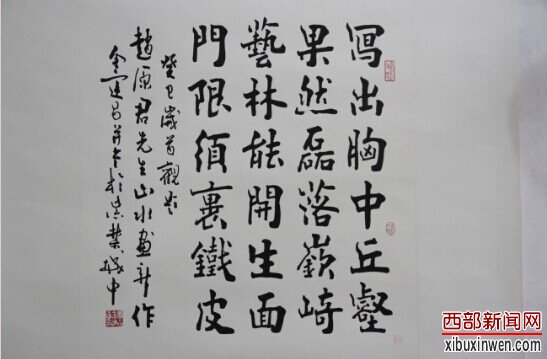 冩出胸中丘壑
果然磊落嶔崎
藝林能開生面
門限須裹鐵皮
癸巳歲首觀
趙原君先生山水畫新作
金運昌并
西部新闻网
xibuxinwen.com